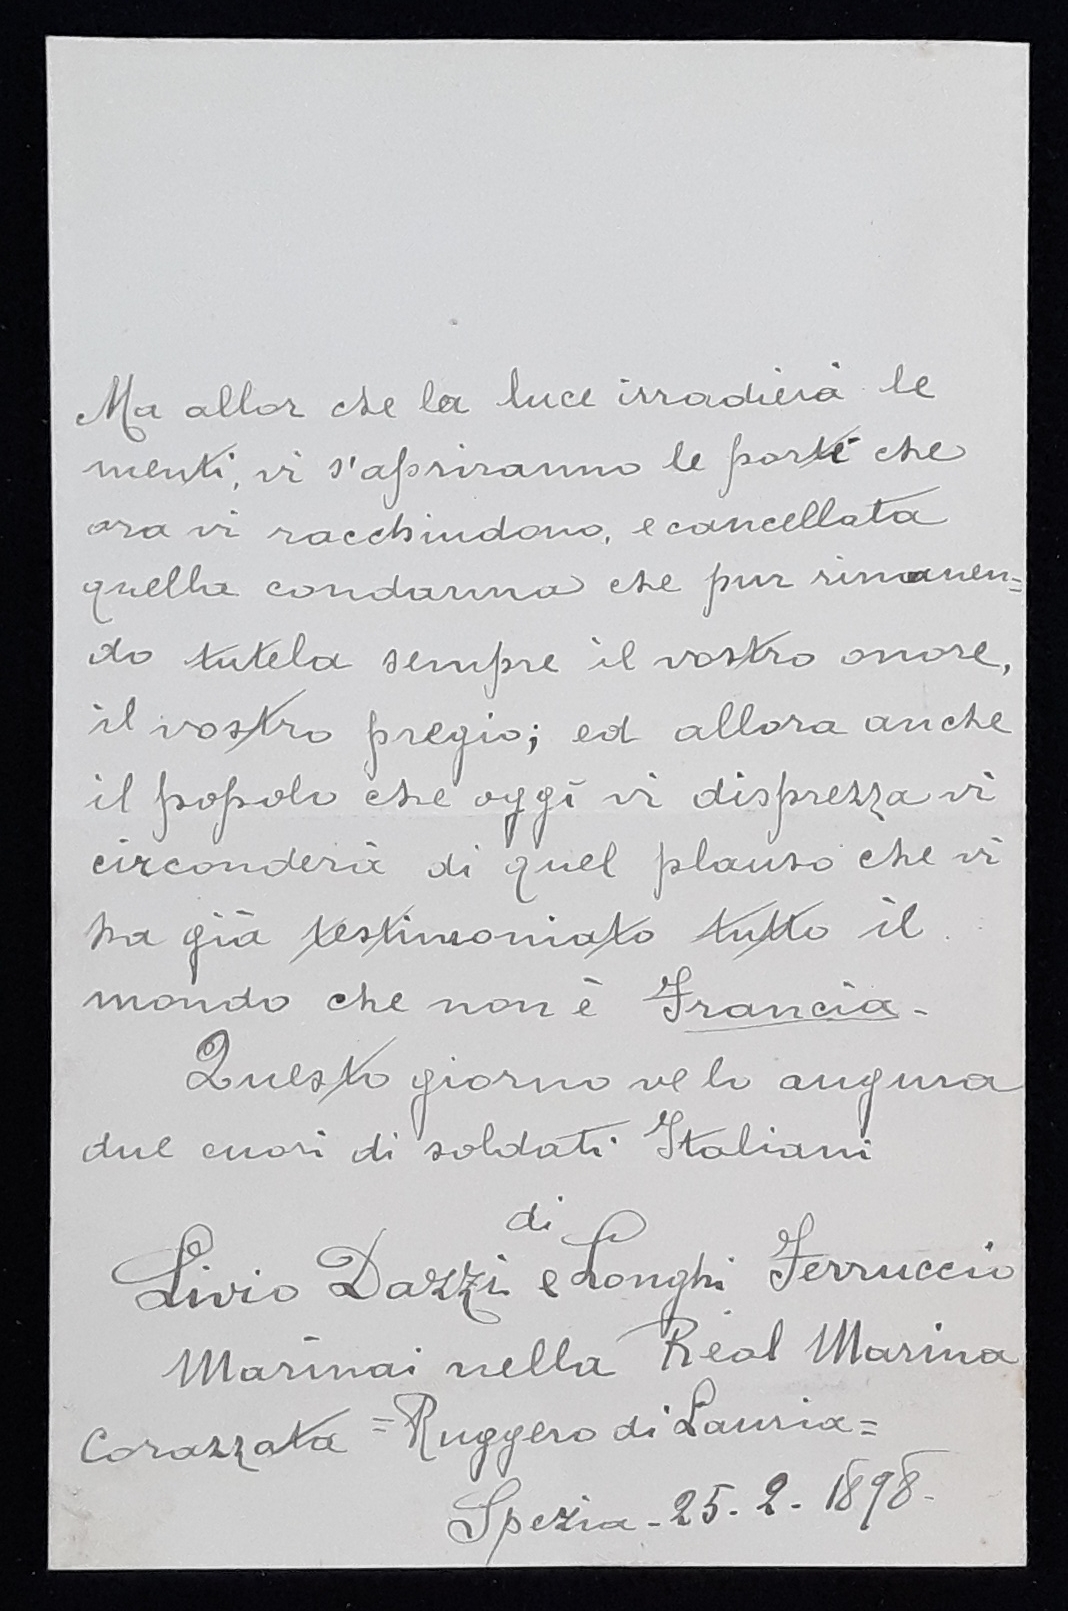 Ma allor che la luce irradierà le
menti, vi s'apriranno le porte che
ora vi racchiudono, e cancellata
quella condanna che pur rimanen=
do tutela sempre il vostro onore,
il vostro pregio; ed allora anche
il popolo che oggi vi disprezza vi
circonderà di quel plauso che vi
ha già testimoniato tutto il
mondo che non è Francia -
Questo giorno ve lo augura
due cuori di soldati Italiani
di
Livio Dazzi e Longhi Ferruccio
Marinai nella Real Marina
Corazzata =Ruggero di Lauria=
Spezia - 25. 2. 1898 -